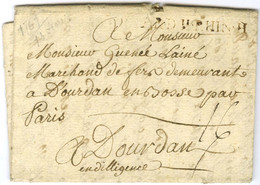 A Monsieur
Monsieur Guenée Lainé
Marchand de fers demeurant
a Dourdan en Bosse par
Paris
A Dourdan
en dilligence